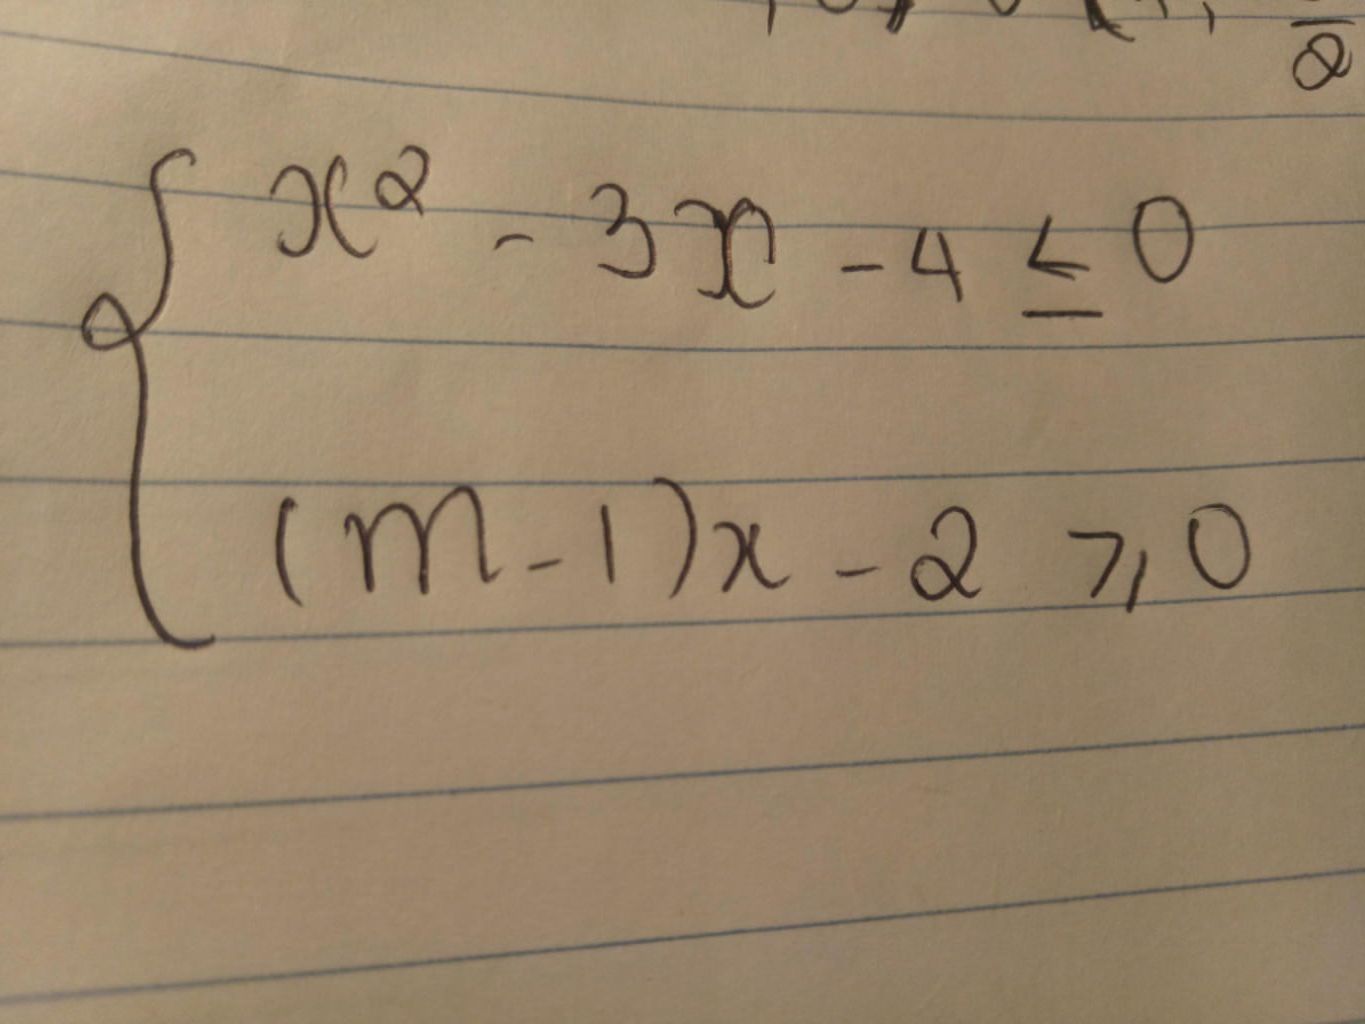 x² - 3x - 4 ≤ 0
(m - 1)x - 2 ⩾ 0